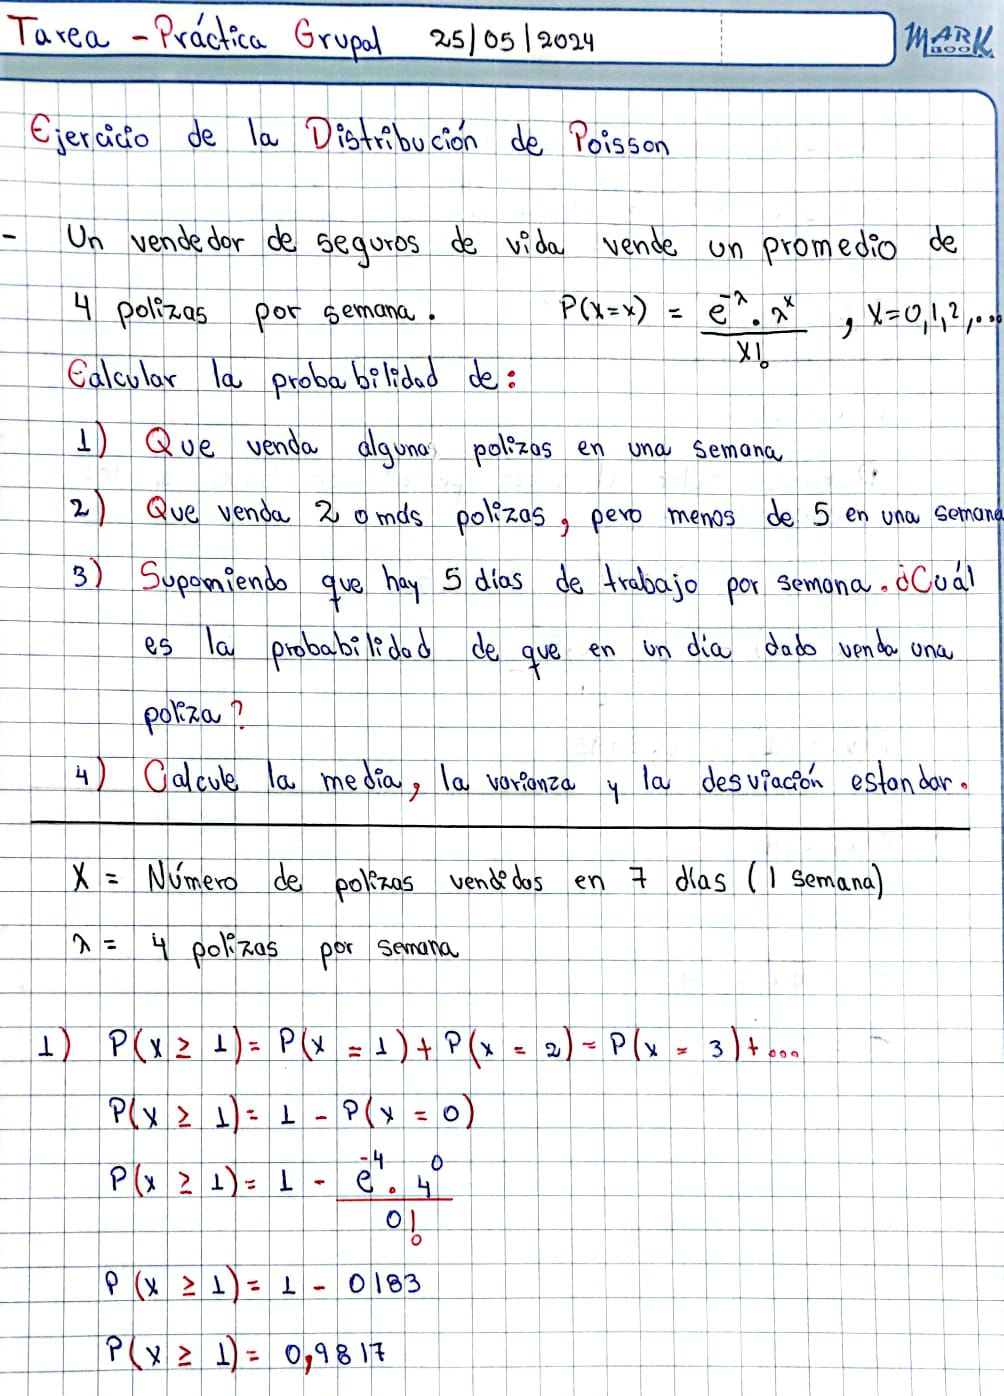 Tarea - Práctica Grupal 25/05/2024
MARK
BOOK
Ejercicio de la Distribución de Poisson
- Un vendedor de seguros de vida vende un promedio de
4 polizas por semana. P(x=x) = e^-λ . λ^x / x! , x=0,1,2,...
Calcular la probabilidad de:
1) Que venda algunas polizas en una semana
2) Que venda 2 o más polizas, pero menos de 5 en una semana
3) Supomiendo que hay 5 días de trabajo por semana. ¿Cuál
es la probabilidad de que en un día dado venda una
poliza?
4) Calcule la media, la varianza y la desviación estandar.
X = Número de polizas vendidas en 7 días (1 semana)
λ = 4 polizas por semana
1) P(x ≥ 1) = P(x = 1) + P(x = 2) = P(x = 3) + ...
P(x ≥ 1) = 1 - P(x = 0)
P(x ≥ 1) = 1 - e^-4 . 4^0 / 0!
P(x ≥ 1) = 1 - 0183
P(x ≥ 1) = 0,9817